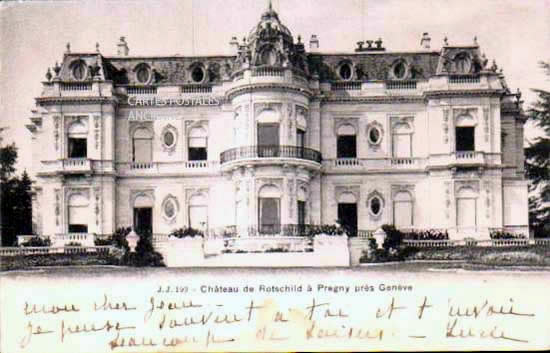 CARTES POSTALES
ANCIENNES
J.J. 199 - Château de Rotschild à Pregny près Genève
mon cher Jean -
je pense souvent à toi et t'envoie
beaucoup de baisers - Lucie